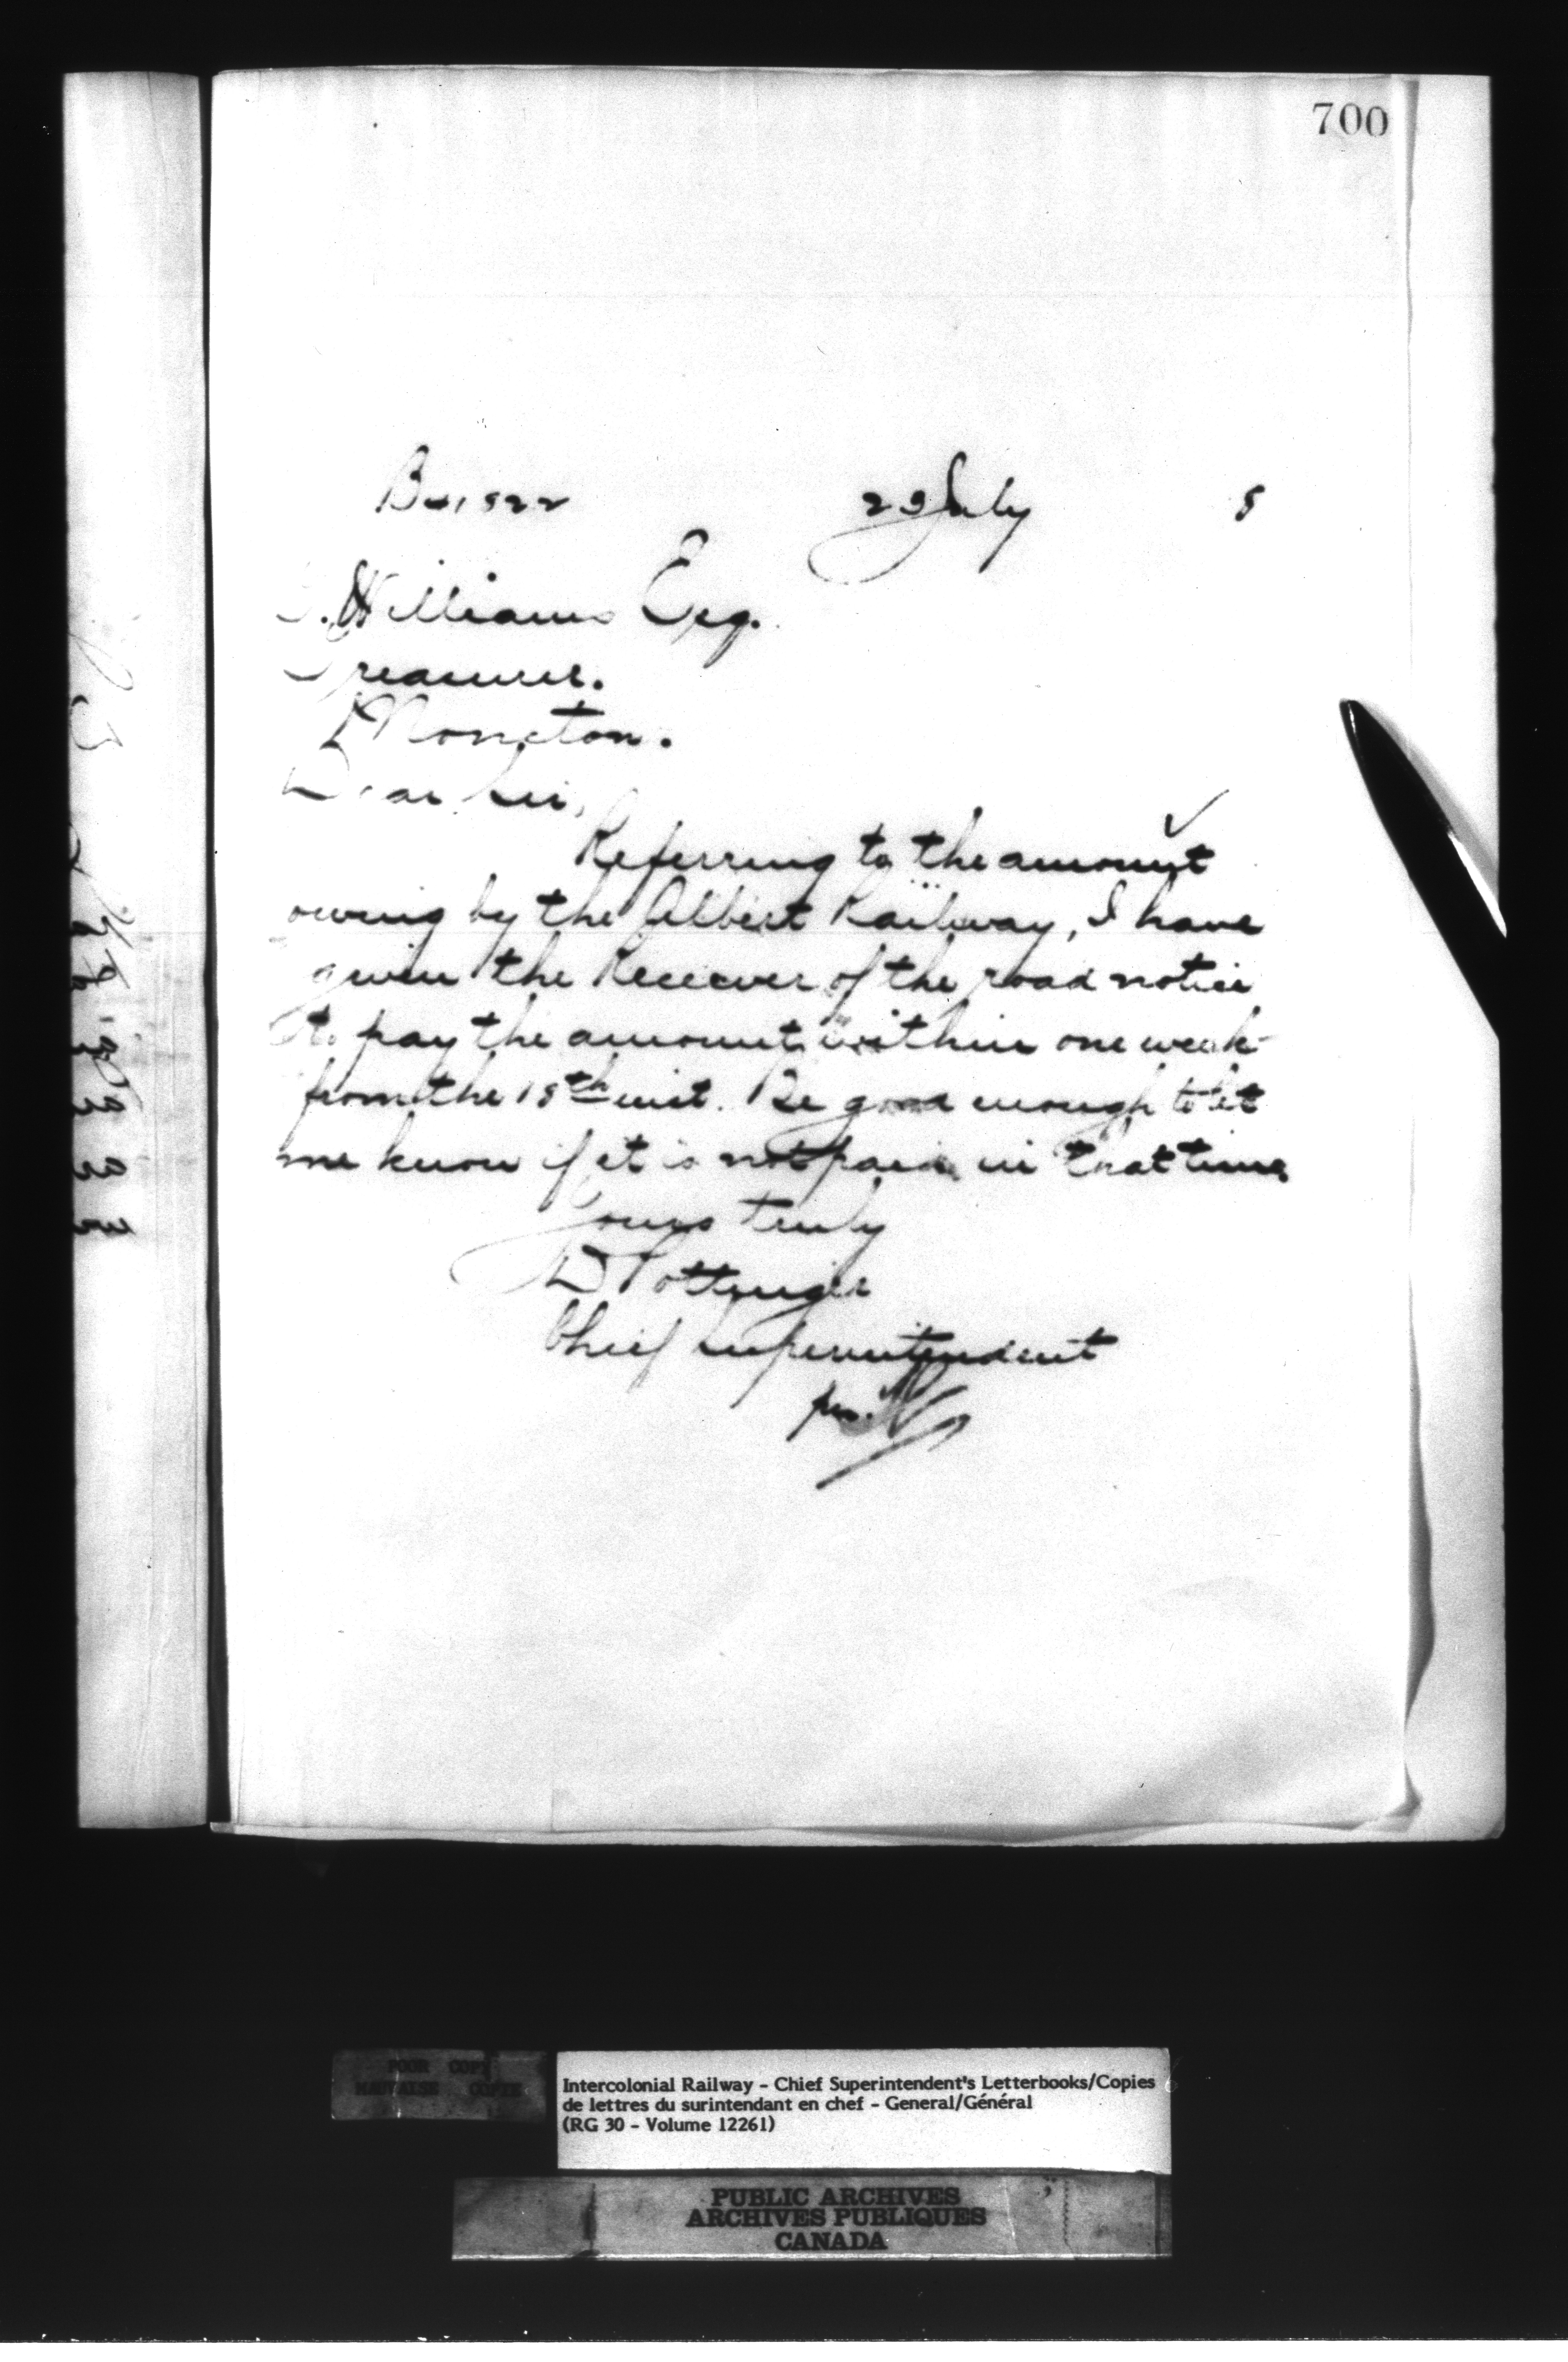 700
23 July 8
Williams Esq.
Treasurer.
Moncton.
Dear Sir,
Referring to the amount
owing by the Albert Railway, I have
given the Receiver of the road notice
to pay the amount within one week
from the 18th inst. Be good enough to let
me know if it is not paid in that time.
Yours truly
D Pottinger
Chief Superintendent
per.
POOR COPY
MAUVAISE COPIE
Intercolonial Railway - Chief Superintendent's Letterbooks/Copies
de lettres du surintendant en chef - General/Général
(RG 30 - Volume 12261)
PUBLIC ARCHIVES
ARCHIVES PUBLIQUES
CANADA